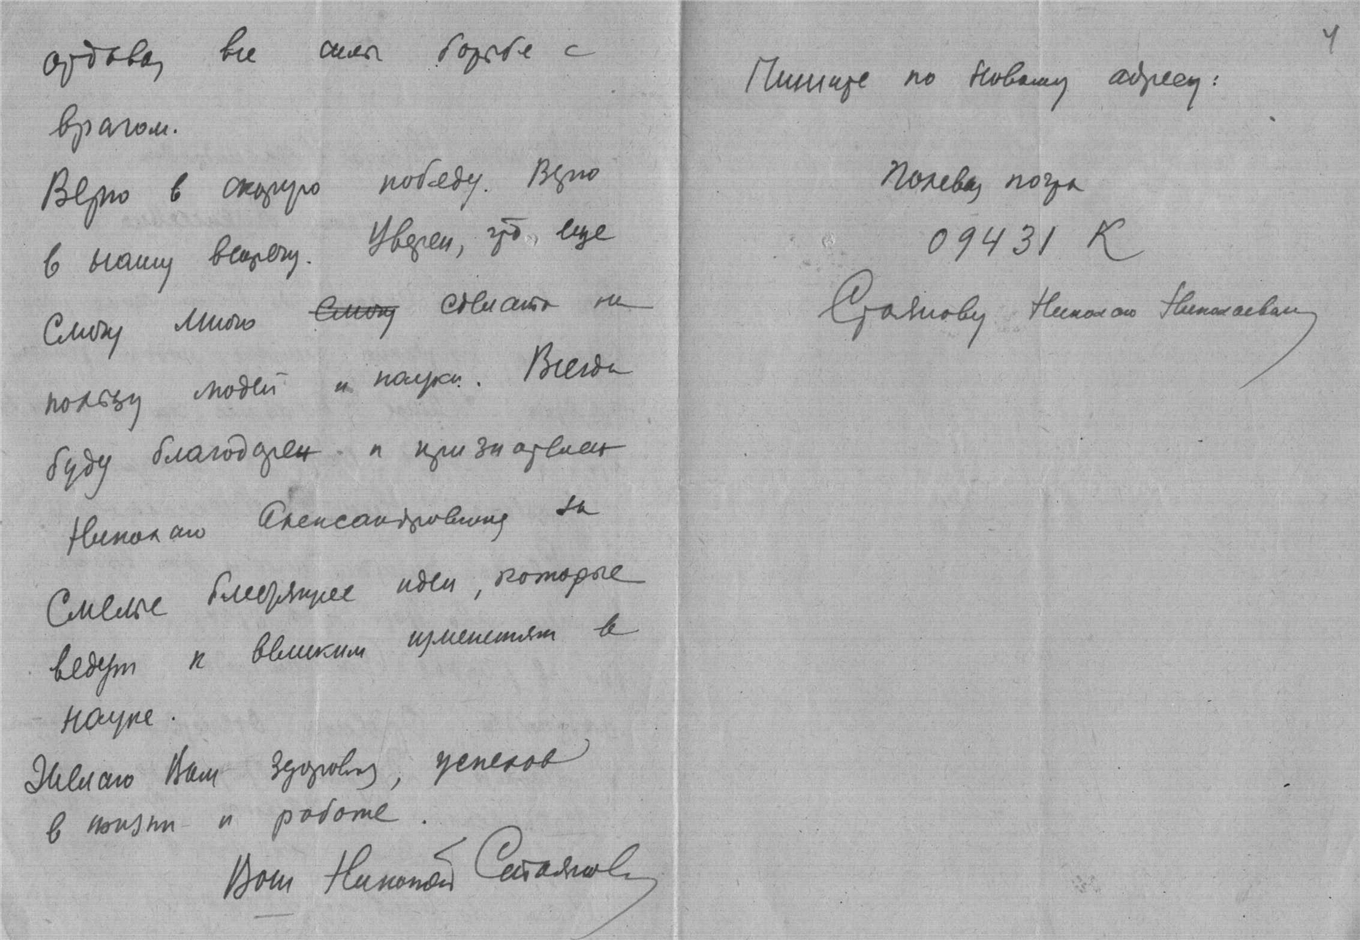 отдавая все силы борьбе с
врагом.
Верю в скорую победу. Верю
в нашу встречу. Уверен, что еще
смогу много смогу сделать на
пользу людей и науки. Всегда
буду благодарен и признателен
Николаю Александровичу за
смелые блестящие идеи, которые
ведут к великим изменениям в
науке.
Желаю Вам здоровья, успехов
в жизни и работе.
Ваш Николай Стоянов
4
Пишите по новому адресу:
Полевая почта
09431 К
Стоянову Николаю Николаевичу